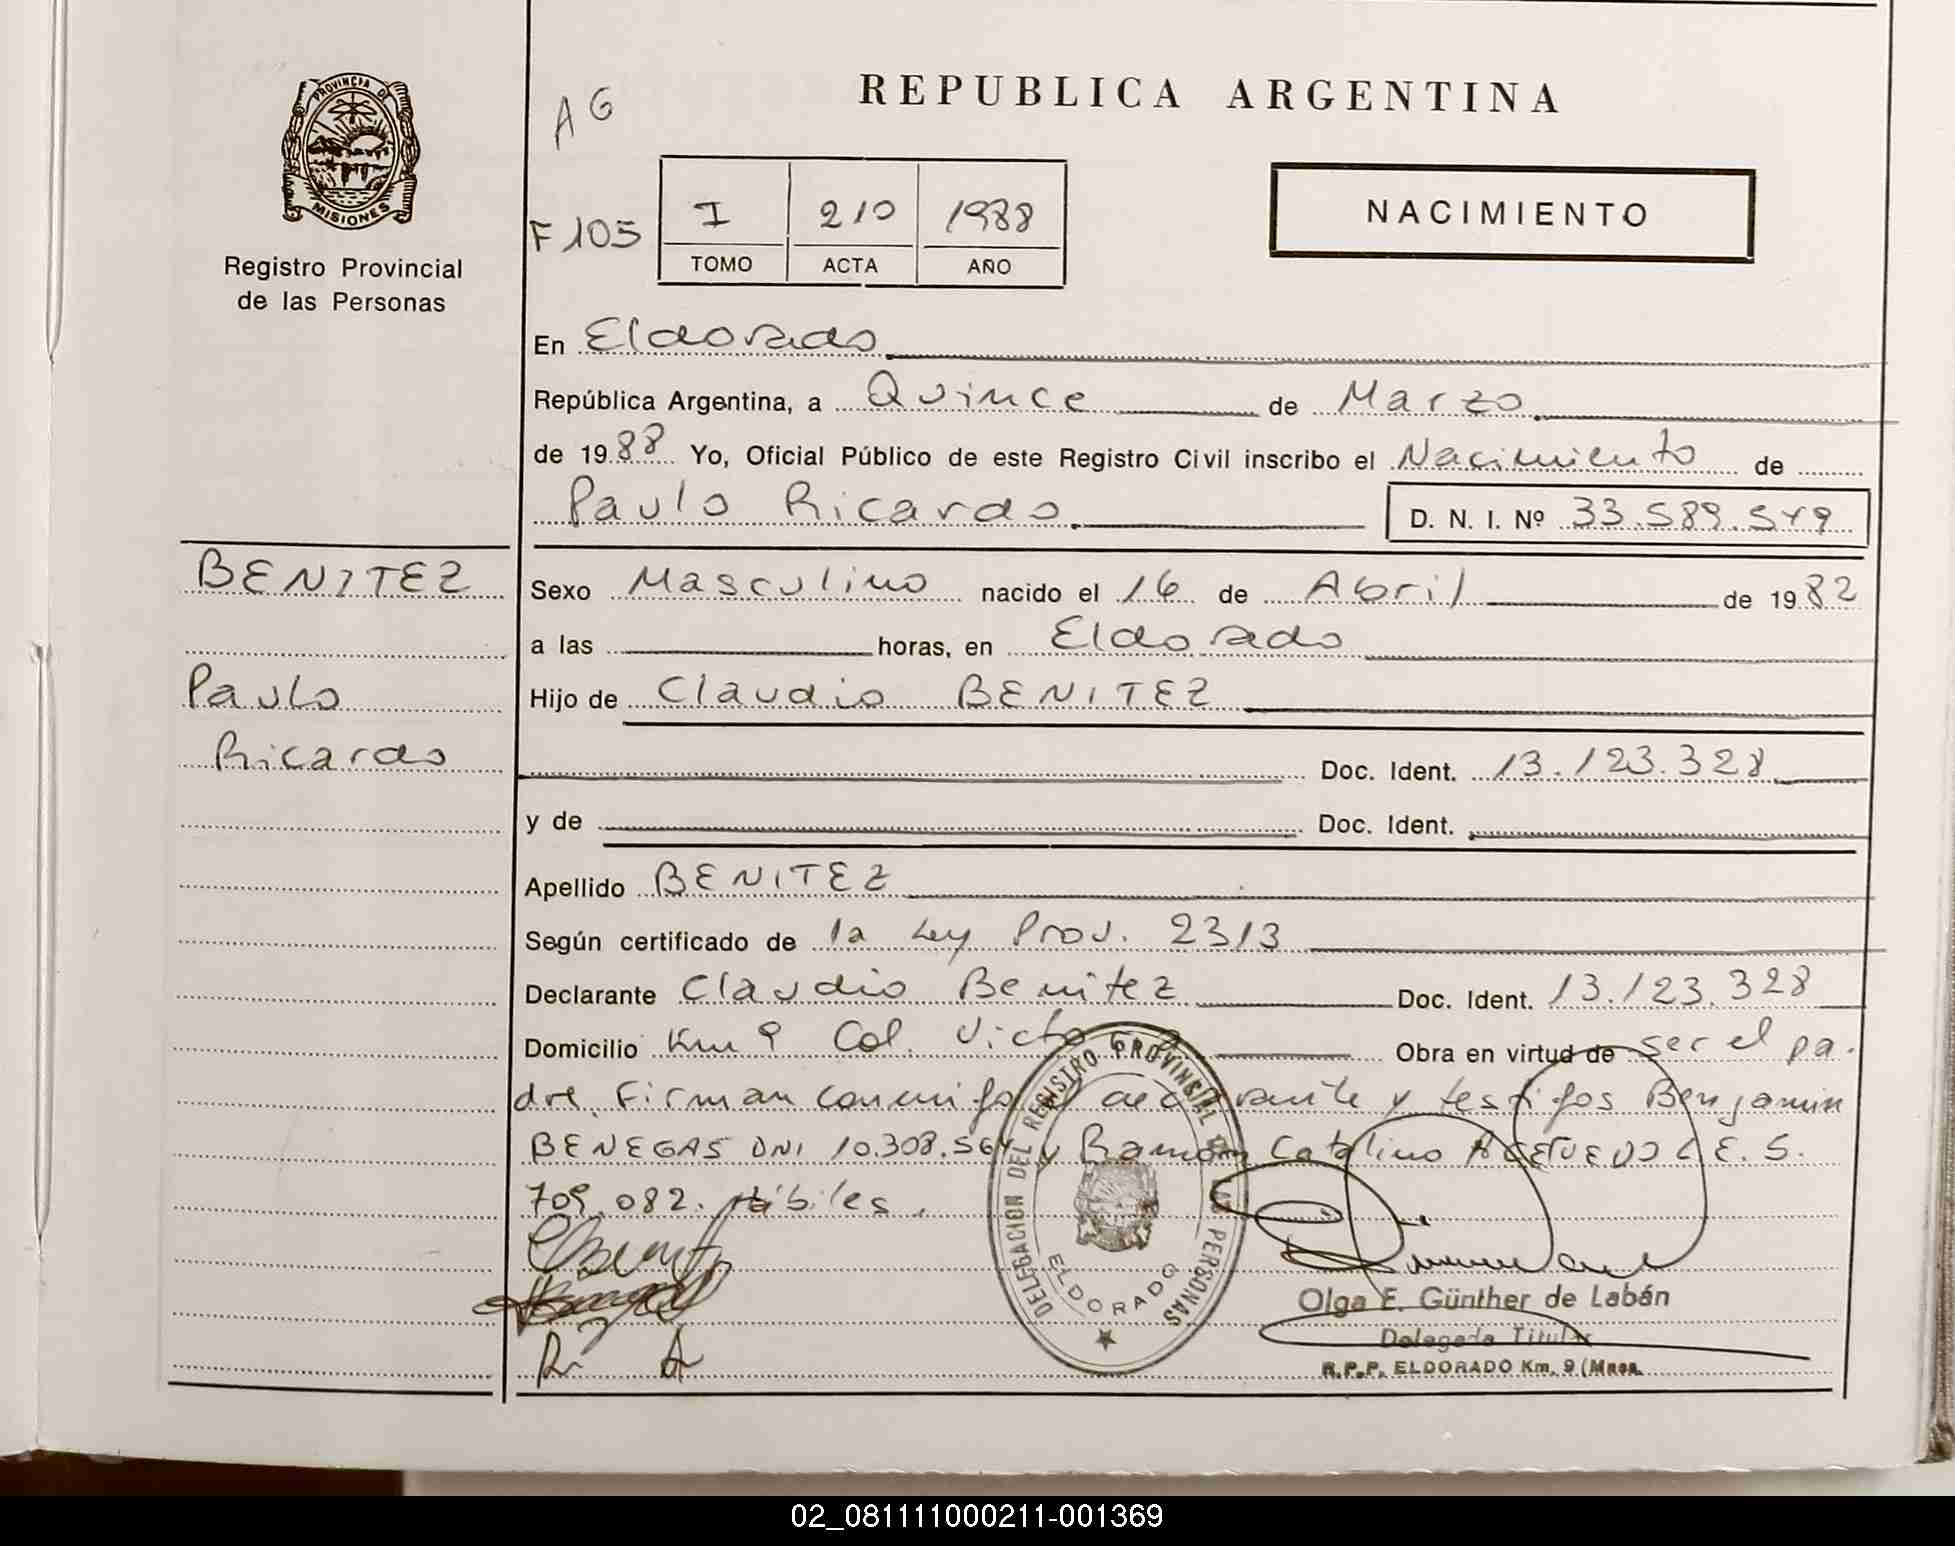 PROVINCIA DE
MISIONES
Registro Provincial
de las Personas
AG
REPUBLICA ARGENTINA
F 105
I 210 1988
TOMO ACTA AÑO
NACIMIENTO
En Eldorado
República Argentina, a Quince de Marzo
de 1988 Yo, Oficial Público de este Registro Civil inscribo el Nacimiento de
Paulo Ricardo D. N. I. Nº 33.589.549
BENITEZ
Paulo
Ricardo
Sexo Masculino nacido el 16 de Abril de 1982
a las horas, en Eldorado
Hijo de Claudio BENITEZ
Doc. Ident. 13.123.328
y de Doc. Ident.
Apellido BENITEZ
Según certificado de la Ley Prov. 2313
Declarante Claudio Benitez Doc. Ident. 13.123.328
Domicilio Km 9 Col. Victoria Obra en virtud de ser el pa.
dre. Firman conmigo el declarante y testigos Benjamin
BENEGAS DNI 10.308.564 y Ramón Catalino ACEVEDO L.E. 5.
709.082. Hábiles.
DELEGACION DEL REGISTRO PROVINCIAL DE LAS PERSONAS
ELDORADO
Olga E. Günther de Labán
Delegada Titular
R.P.P. ELDORADO Km. 9 (Mnes.
02_081111000211-001369